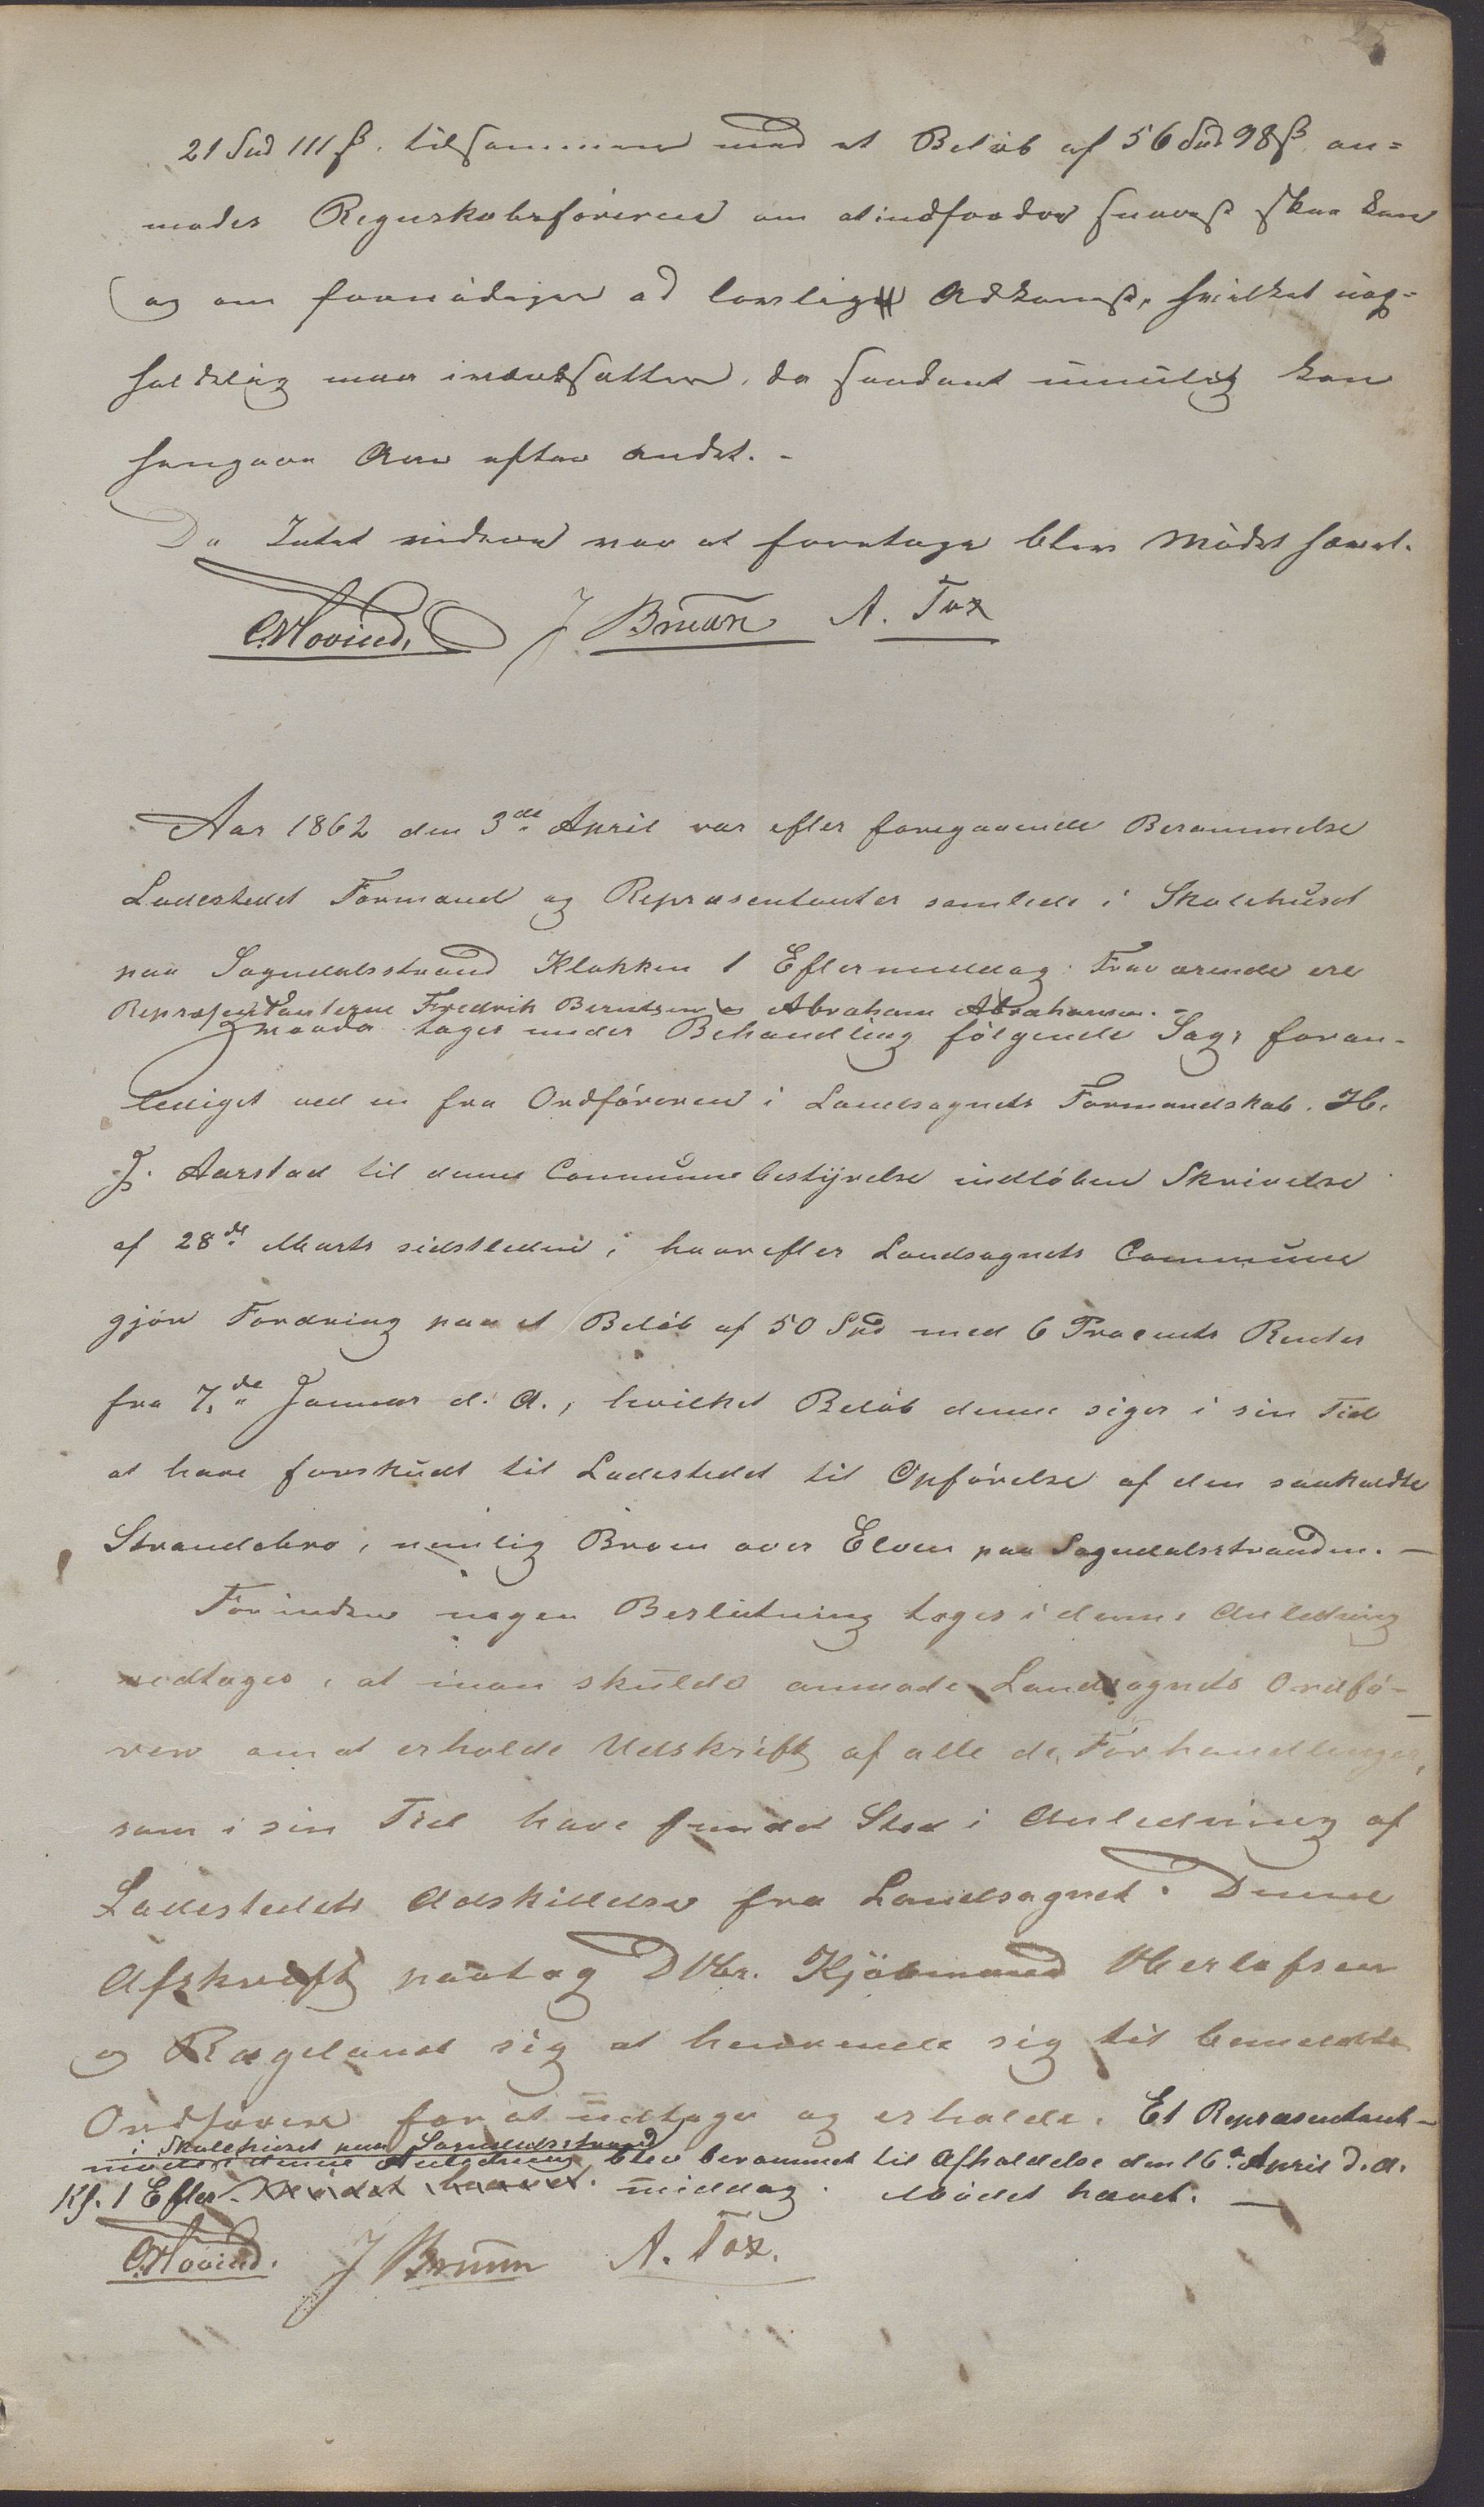 21 Spd 111 ß. tilsammen med et Beløb af 56 Spd 98 ß an=
modes Regnskabsføreren om at indfordre snarest skee kan
og om fornødiger ad lovlig Adkomst, hvilket uop=
holdelig maa iværksættes, da saadant umulig kan
hengaae Aar efter andet. -
Da Intet videre var at foretage blev Mødet hævet.
C. Hovind. J Bruun A. Tox
Aar 1862 den 3de April var efter foregaaende Berammelse
Ladestedets Formænd og Repræsentanter samlede i Skolehuset
paa Sogndalsstrand Klokken 1 Eftermiddag. Fraværende ere
Repræsentanterne Fredrik Berntsen og Abraham Abrahamsen. -
tages under Behandling følgende Sag, foran-
lediget ved en fra Ordføreren i Landsognets Formandskab. H.
J. Aarstad til denne Communebestyrelse indløben Skrivelse
af 28de Marts sidstleden, hvorefter Landsognets Commune
gjør Fordring paa et Beløb af 50 Spd med 6 Procents Renter
fra 7de Januar d. A., hvilket Beløb denne siger i sin Tid
at have forskudt til Ladestedet til Opførelse af den saakaldte
Strandebro, nemlig Broen over Elven paa Sogndalsstranden. —
Forinden nogen Beslutning tages i denne Anledning
vedtages, at man skulde anmode Landsognets Ordfø-
rer om at erholde Udskrift af alle de Forhandlinger,
som i sin Tid have fundet Sted i Anledning af
Ladestedets Adskillelse fra Landsognet. Denne
Afskrift paatog DHr. Kjøbmænd Herlofsen
og Rægeland sig at henvende sig til bemeldte
Ordfører for at udtage og erholde. Et Repræsentant-
i Skolehuset paa Sogndalsstrand
møde i denne Anledning blev berammet til Afholdelse den 16de April d. A.
Kl. 1 Efter- Mødet hævet. middag. Mødet hævet. —
C. Hovind. J Bruun A. Tox.